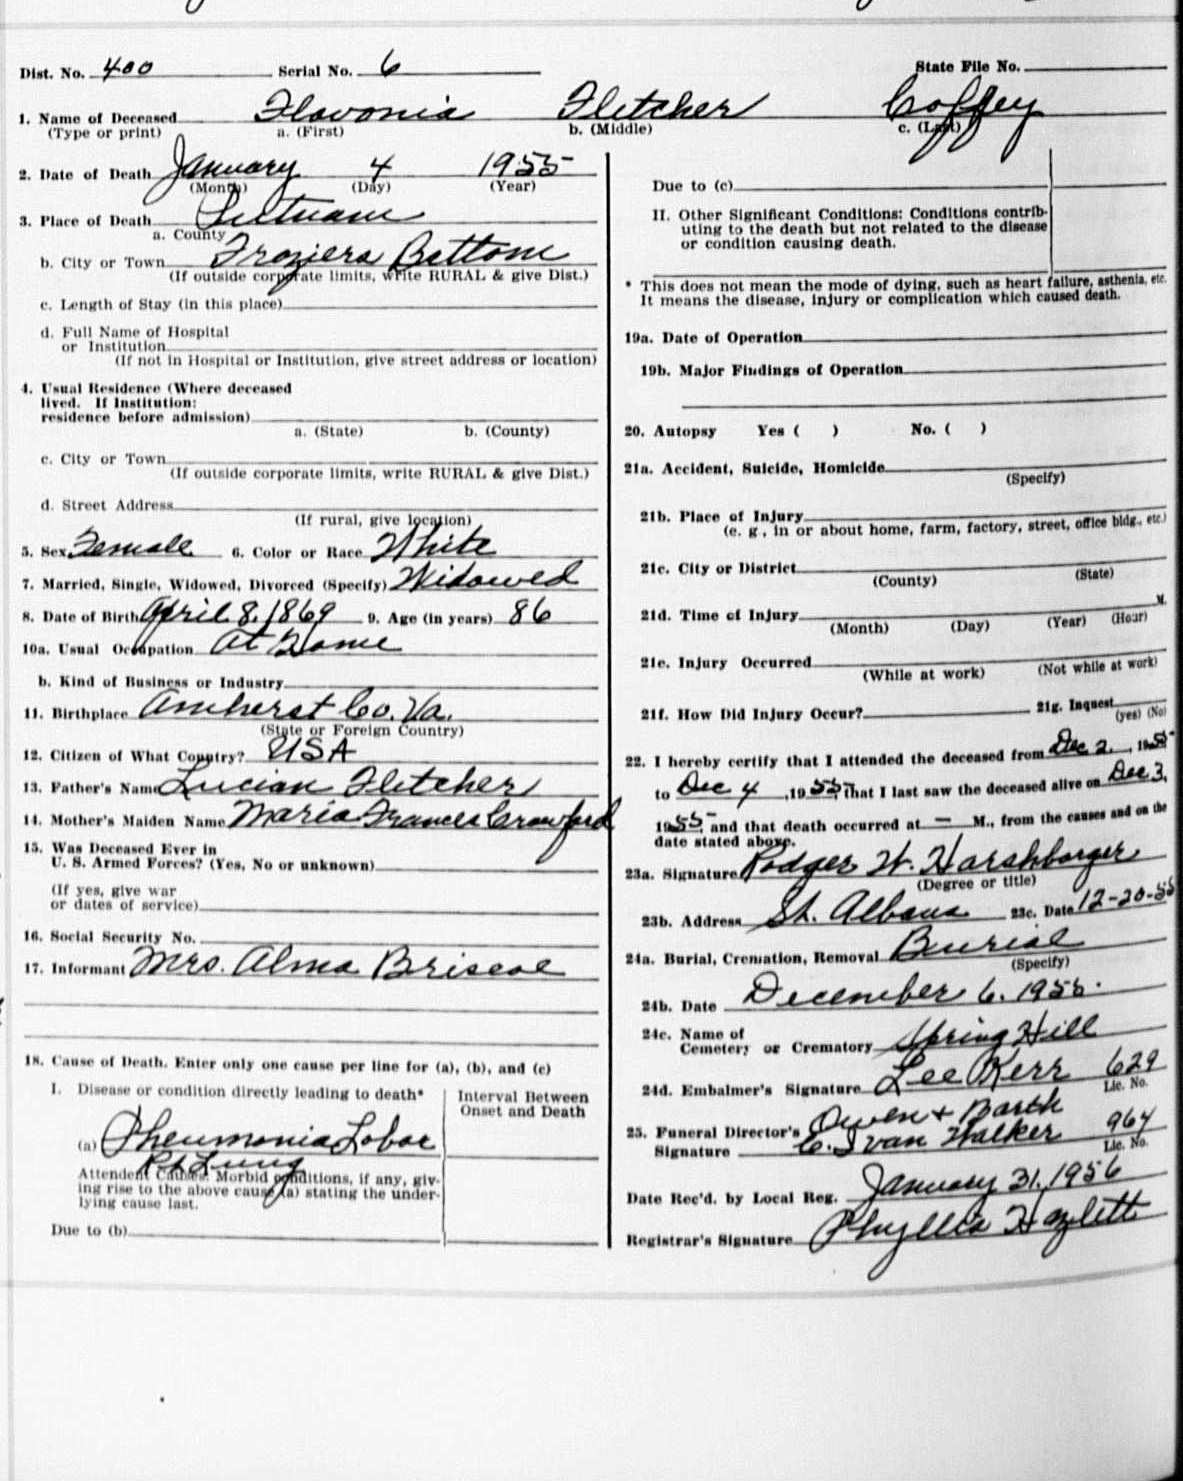 Dist. No. 400 Serial No. 6 State File No.
1. Name of Deceased Flavonia Fletcher Coffey
(Type or print) a. (First) b. (Middle) c. (Last)
2. Date of Death January 4 1955
(Month) (Day) (Year)
3. Place of Death Putnam
a. County
b. City or Town Fraziers Bottom
(If outside corporate limits, write RURAL & give Dist.)
c. Length of Stay (in this place)
d. Full Name of Hospital
or Institution
(If not in Hospital or Institution, give street address or location)
4. Usual Residence (Where deceased
lived. If Institution:
residence before admission)
a. (State) b. (County)
c. City or Town
(If outside corporate limits, write RURAL & give Dist.)
d. Street Address
(If rural, give location)
5. Sex Female 6. Color or Race White
7. Married, Single, Widowed, Divorced (Specify) Widowed
8. Date of Birth April 8, 1869 9. Age (in years) 86
10a. Usual Occupation At Home
b. Kind of Business or Industry
11. Birthplace Amherst Co. Va.
(State or Foreign Country)
12. Citizen of What Country? USA
13. Father's Name Lucian Fletcher
14. Mother's Maiden Name Maria Frances Crawford
15. Was Deceased Ever in
U. S. Armed Forces? (Yes, No or unknown)
(If yes, give war
or dates of service)
16. Social Security No.
17. Informant Mrs. Alma Briscoe
18. Cause of Death. Enter only one cause per line for (a), (b), and (c)
I. Disease or condition directly leading to death*
Interval Between
Onset and Death
(a) Pheumonia Lobar
Rt Lung
Attendent Causes. Morbid conditions, if any, giv-
ing rise to the above cause (a) stating the under-
lying cause last.
Due to (b)
Due to (c)
II. Other Significant Conditions: Conditions contrib-
uting to the death but not related to the disease
or condition causing death.
* This does not mean the mode of dying, such as heart failure, asthenia, etc.
It means the disease, injury or complication which caused death.
19a. Date of Operation
19b. Major Findings of Operation
20. Autopsy Yes ( ) No. ( )
21a. Accident, Suicide, Homicide
(Specify)
21b. Place of Injury
(e. g., in or about home, farm, factory, street, office bldg., etc.)
21c. City or District
(County) (State)
21d. Time of Injury M.
(Month) (Day) (Year) (Hour)
21e. Injury Occurred
(While at work) (Not while at work)
21f. How Did Injury Occur? 21g. Inquest
(yes) (No)
22. I hereby certify that I attended the deceased from Dec 2, 1955
to Dec 4, 1955, that I last saw the deceased alive on Dec 3,
1955, and that death occurred at — M., from the causes and on the
date stated above.
23a. Signature Rodger W. Harshbarger
(Degree or title)
23b. Address St. Albans 23c. Date 12-20-55
24a. Burial, Cremation, Removal Burial
(Specify)
24b. Date December 6, 1955.
24c. Name of
Cemetery or Crematory Spring Hill
24d. Embalmer's Signature Lee Kerr 629
Lic. No.
Owen + Barth
25. Funeral Director's
Signature C. Ivan Walker 964
Lic. No.
Date Rec'd. by Local Reg. January 31, 1956
Registrar's Signature Phyllis Hazlett